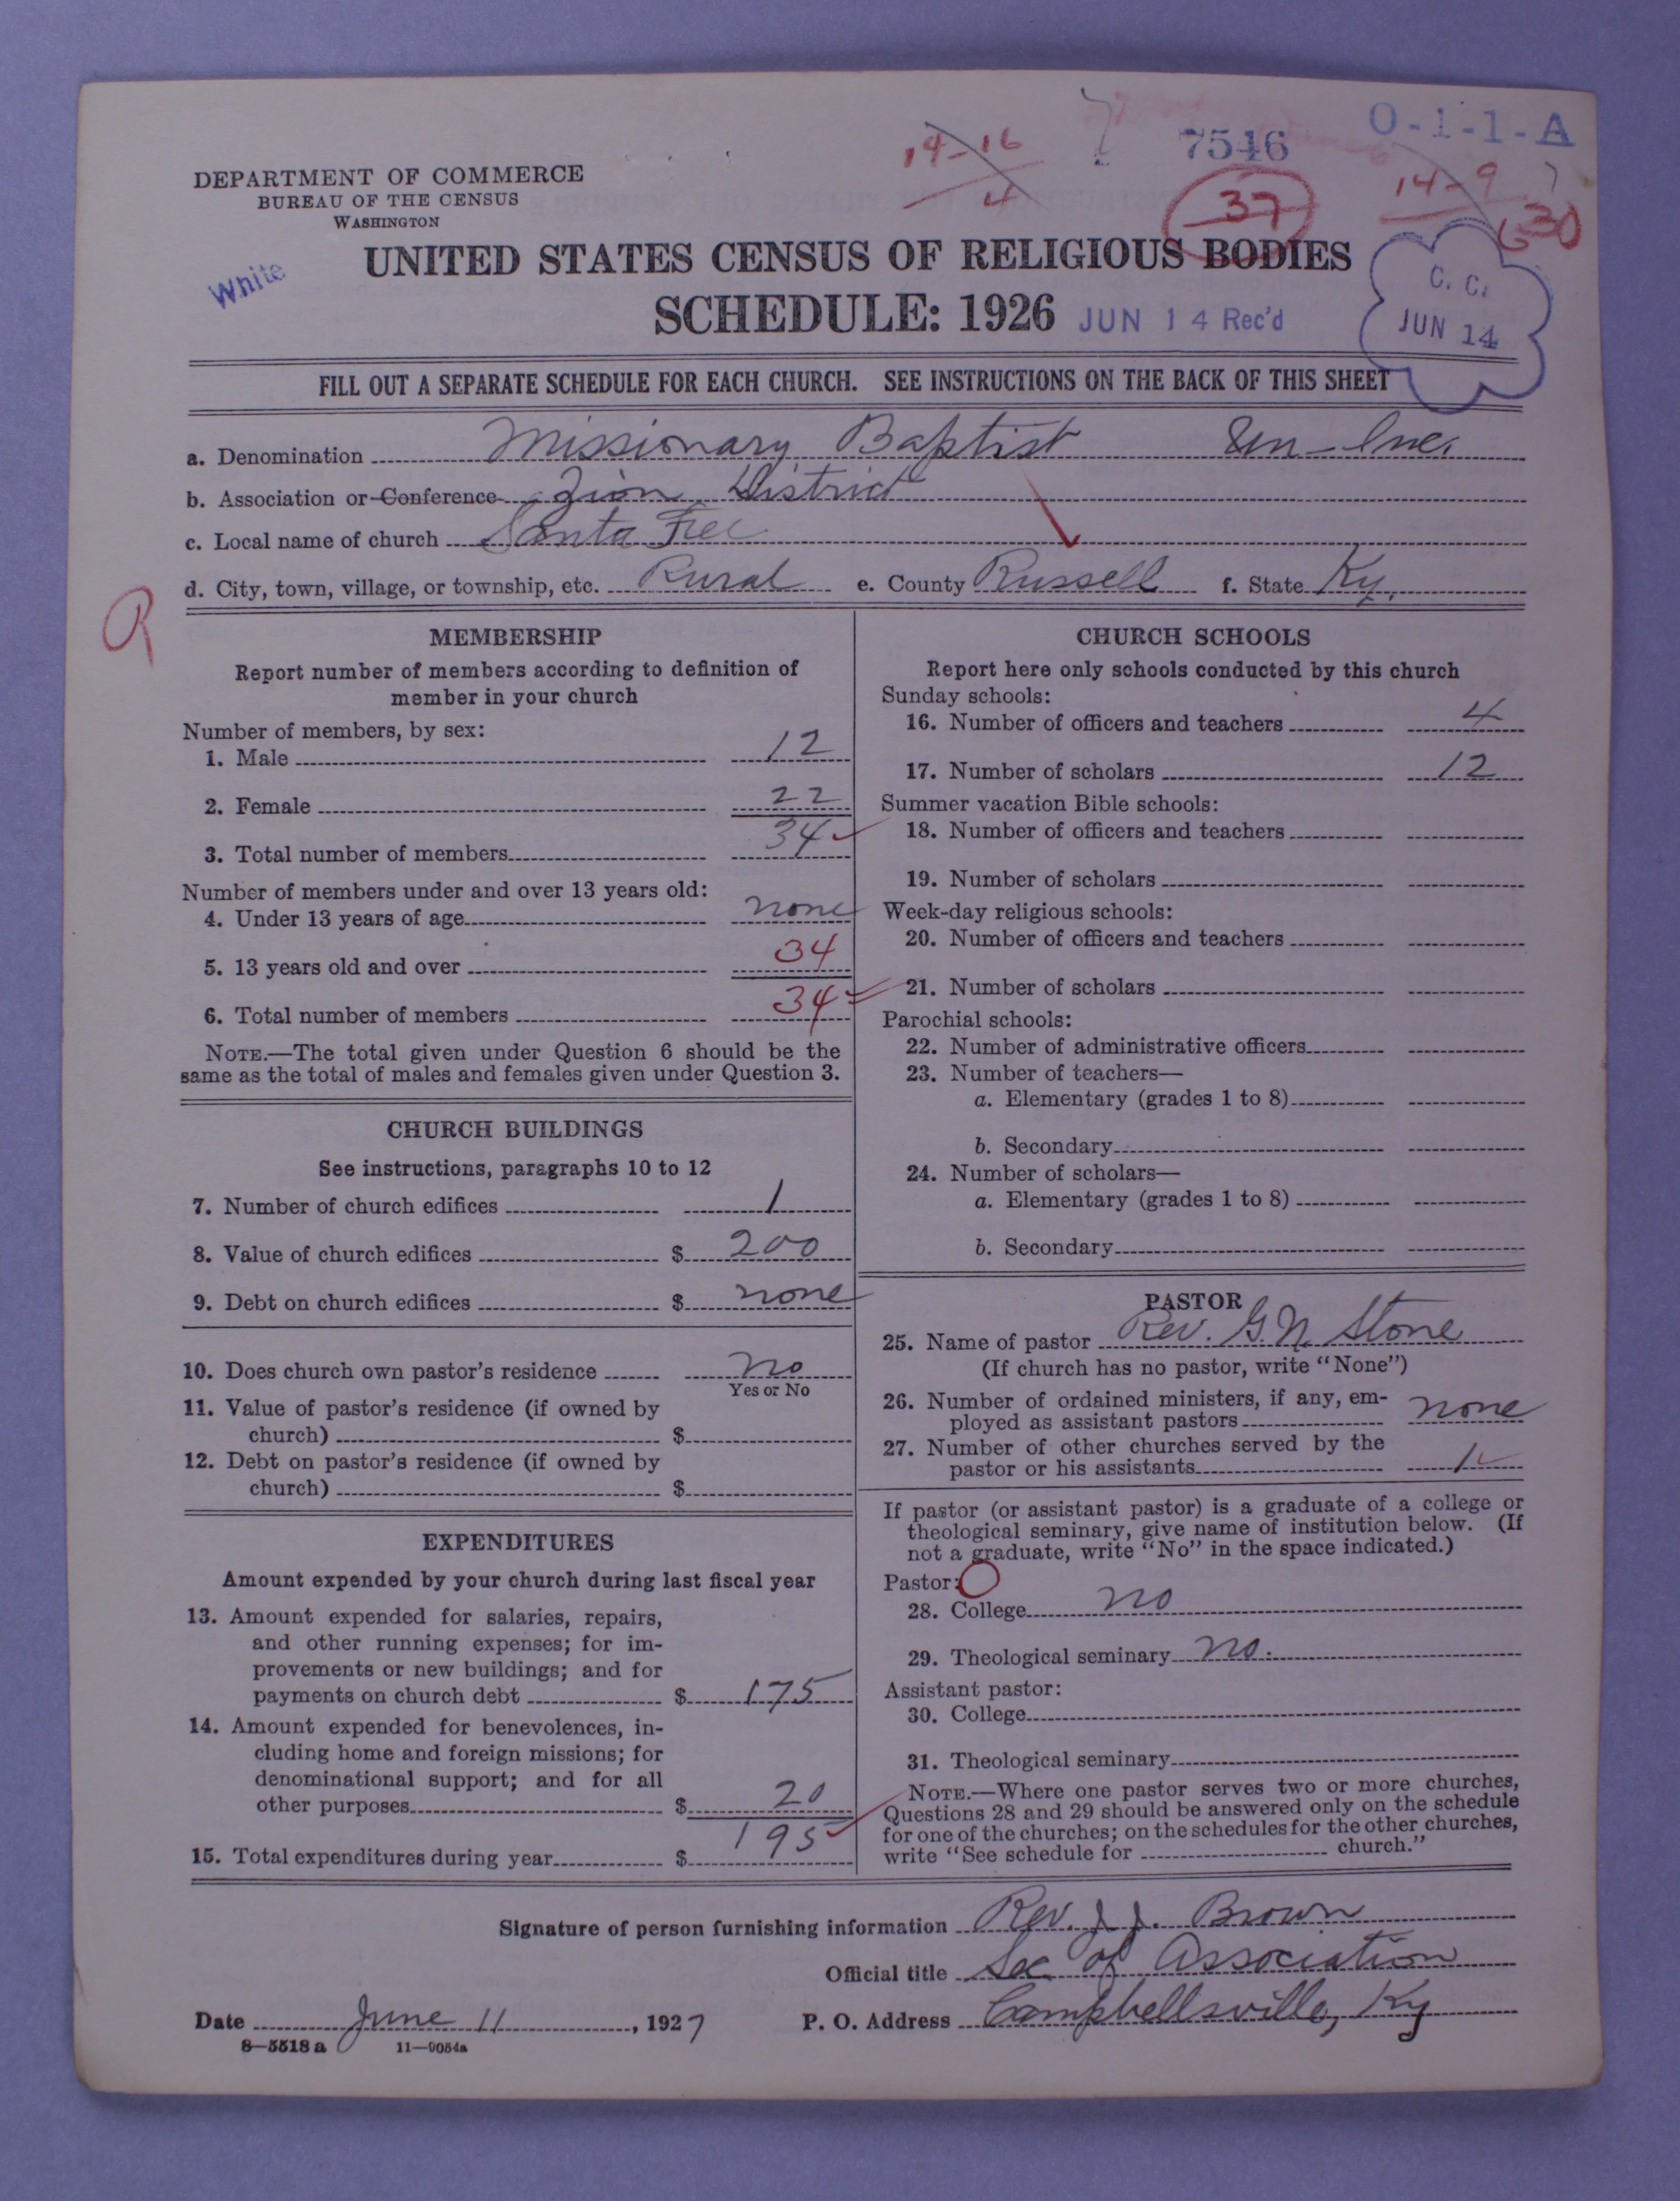 O-1-1-A
14-16
4
7546
37
14-9
630
DEPARTMENT OF COMMERCE
BUREAU OF THE CENSUS
WASHINGTON
White
UNITED STATES CENSUS OF RELIGIOUS BODIES
SCHEDULE: 1926 JUN 14 Rec'd
C. C.
JUN 14
FILL OUT A SEPARATE SCHEDULE FOR EACH CHURCH. SEE INSTRUCTIONS ON THE BACK OF THIS SHEET
a. Denomination Missionary Baptist Un-Inc.
b. Association or Conference Zion District
c. Local name of church Santa Fee
d. City, town, village, or township, etc. Rural e. County Russell f. State Ky.
R
MEMBERSHIP
Report number of members according to definition of
member in your church
Number of members, by sex:
1. Male 12
2. Female 22
3. Total number of members 34
Number of members under and over 13 years old:
4. Under 13 years of age none
5. 13 years old and over 34
6. Total number of members 34
NOTE.—The total given under Question 6 should be the
same as the total of males and females given under Question 3.
CHURCH BUILDINGS
See instructions, paragraphs 10 to 12
7. Number of church edifices 1
8. Value of church edifices $ 200
9. Debt on church edifices $ none
10. Does church own pastor's residence no
Yes or No
11. Value of pastor's residence (if owned by
church) $
12. Debt on pastor's residence (if owned by
church) $
EXPENDITURES
Amount expended by your church during last fiscal year
13. Amount expended for salaries, repairs,
and other running expenses; for im-
provements or new buildings; and for
payments on church debt $ 175
14. Amount expended for benevolences, in-
cluding home and foreign missions; for
denominational support; and for all
other purposes $ 20
15. Total expenditures during year $ 195
CHURCH SCHOOLS
Report here only schools conducted by this church
Sunday schools:
16. Number of officers and teachers 4
17. Number of scholars 12
Summer vacation Bible schools:
18. Number of officers and teachers
19. Number of scholars
Week-day religious schools:
20. Number of officers and teachers
21. Number of scholars
Parochial schools:
22. Number of administrative officers
23. Number of teachers—
a. Elementary (grades 1 to 8)
b. Secondary
24. Number of scholars—
a. Elementary (grades 1 to 8)
b. Secondary
PASTOR
25. Name of pastor Rev. G. N. Stone
(If church has no pastor, write "None")
26. Number of ordained ministers, if any, em-
ployed as assistant pastors none
27. Number of other churches served by the
pastor or his assistants 1
If pastor (or assistant pastor) is a graduate of a college or
theological seminary, give name of institution below. (If
not a graduate, write "No" in the space indicated.)
Pastor:
28. College no
29. Theological seminary no.
Assistant pastor:
30. College
31. Theological seminary
NOTE.—Where one pastor serves two or more churches,
Questions 28 and 29 should be answered only on the schedule
for one of the churches; on the schedules for the other churches,
write "See schedule for church."
Signature of person furnishing information Rev. J. J. Brown
Official title Sec of Association
Date June 11, 1927 P. O. Address Campbellsville, Ky
8—5518 a 11—9054a